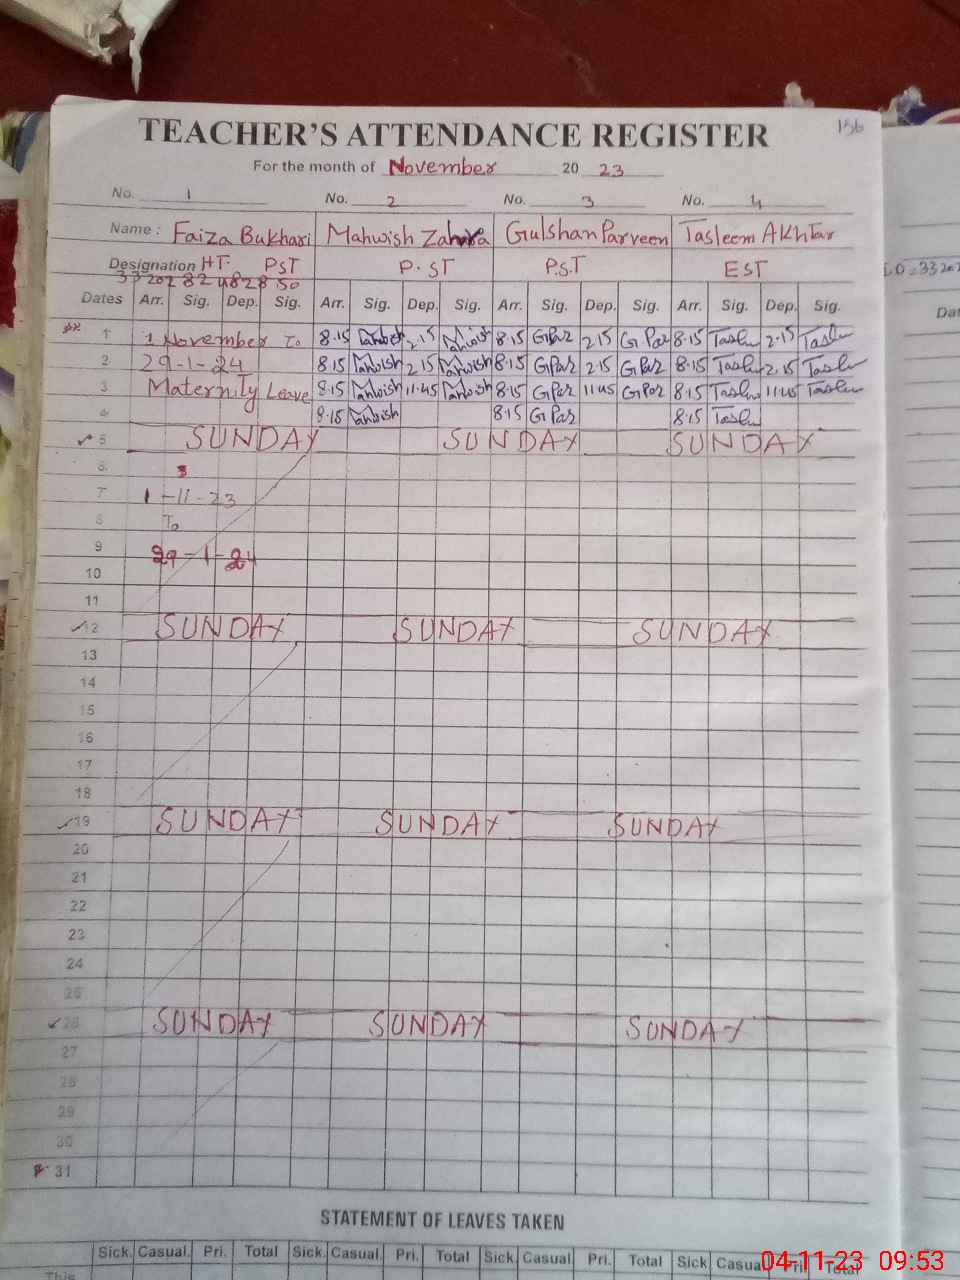 156
TEACHER'S ATTENDANCE REGISTER
For the month of November 20 23
No. 1 No. 2 No. 3 No. 4
Name : Faiza Bukhari Mahwish Zahra Gulshan Parveen Tasleem Akhtar
Designation HT. PST P.ST P.S.T EST
Dates Arr. Sig. Dep. Sig. Arr. Sig. Dep. Sig. Arr. Sig. Dep. Sig. Arr. Sig. Dep. Sig.
1 1 November To 8.15 2.15 Mahwish 8.15 G.Par 2.15 G.Par 8.15 Taslm 2.15 Taslm
2 29-1-24 8.15 Mahwish 2.15 Mahwish 8.15 G.Par 2.15 G.Par 8.15 Taslm 2.15 Taslm
3 Maternity Leave 8.15 Mahwish 11.45 Mahwish 8.15 G.Par 11.45 G.Par 8.15 Taslm 11.45 Taslm
4 8.15 Mahwish 8.15 G.Par 8.15 Taslm
5 SUNDAY SUNDAY SUNDAY
6
7 1-11-23
8 To
9 29-1-24
10
11
12 SUNDAY SUNDAY SUNDAY
13
14
15
16
17
18
19 SUNDAY SUNDAY SUNDAY
20
21
22
23
24
25
26 SUNDAY SUNDAY SUNDAY
27
28
29
30
31
STATEMENT OF LEAVES TAKEN
Sick. Casual. Pri. Total Sick. Casual. Pri. Total Sick. Casual. Pri. Total Sick Casual Pri. Total
This
Dat
04-11-23 09:53